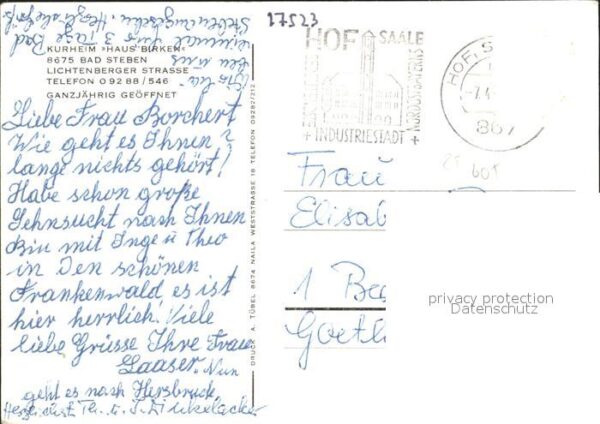 27523
KURHEIM »HAUS BIRKEN«
8675 BAD STEBEN
LICHTENBERGER STRASSE
TELEFON 09288/546
GANZJÄHRIG GEÖFFNET
Liebe Frau Borchert
Wie geht es Ihnen?
lange nichts gehört!
Habe schon große
Sehnsucht nach Ihnen
Bin mit Inge u Theo
in Den schönen
Frankenwald, es ist
hier herrlich. Viele
liebe Grüsse Ihre Frau
Laaser. Nun
geht es nach Hersbruck.
Herzlichst Th. u. I. Dinkelacker
3 Tage Bad
Steben
DRUCK A. TÜBEL 8674 NAILA WESTSTRASSE 18 TELEFON 09282/212
HOF SAALE
NORDOSTBAYERNS
+ INDUSTRIESTADT +
HOF, S
867
Frau
Elisab
1 Be
Goeth
privacy protection
Datenschutz